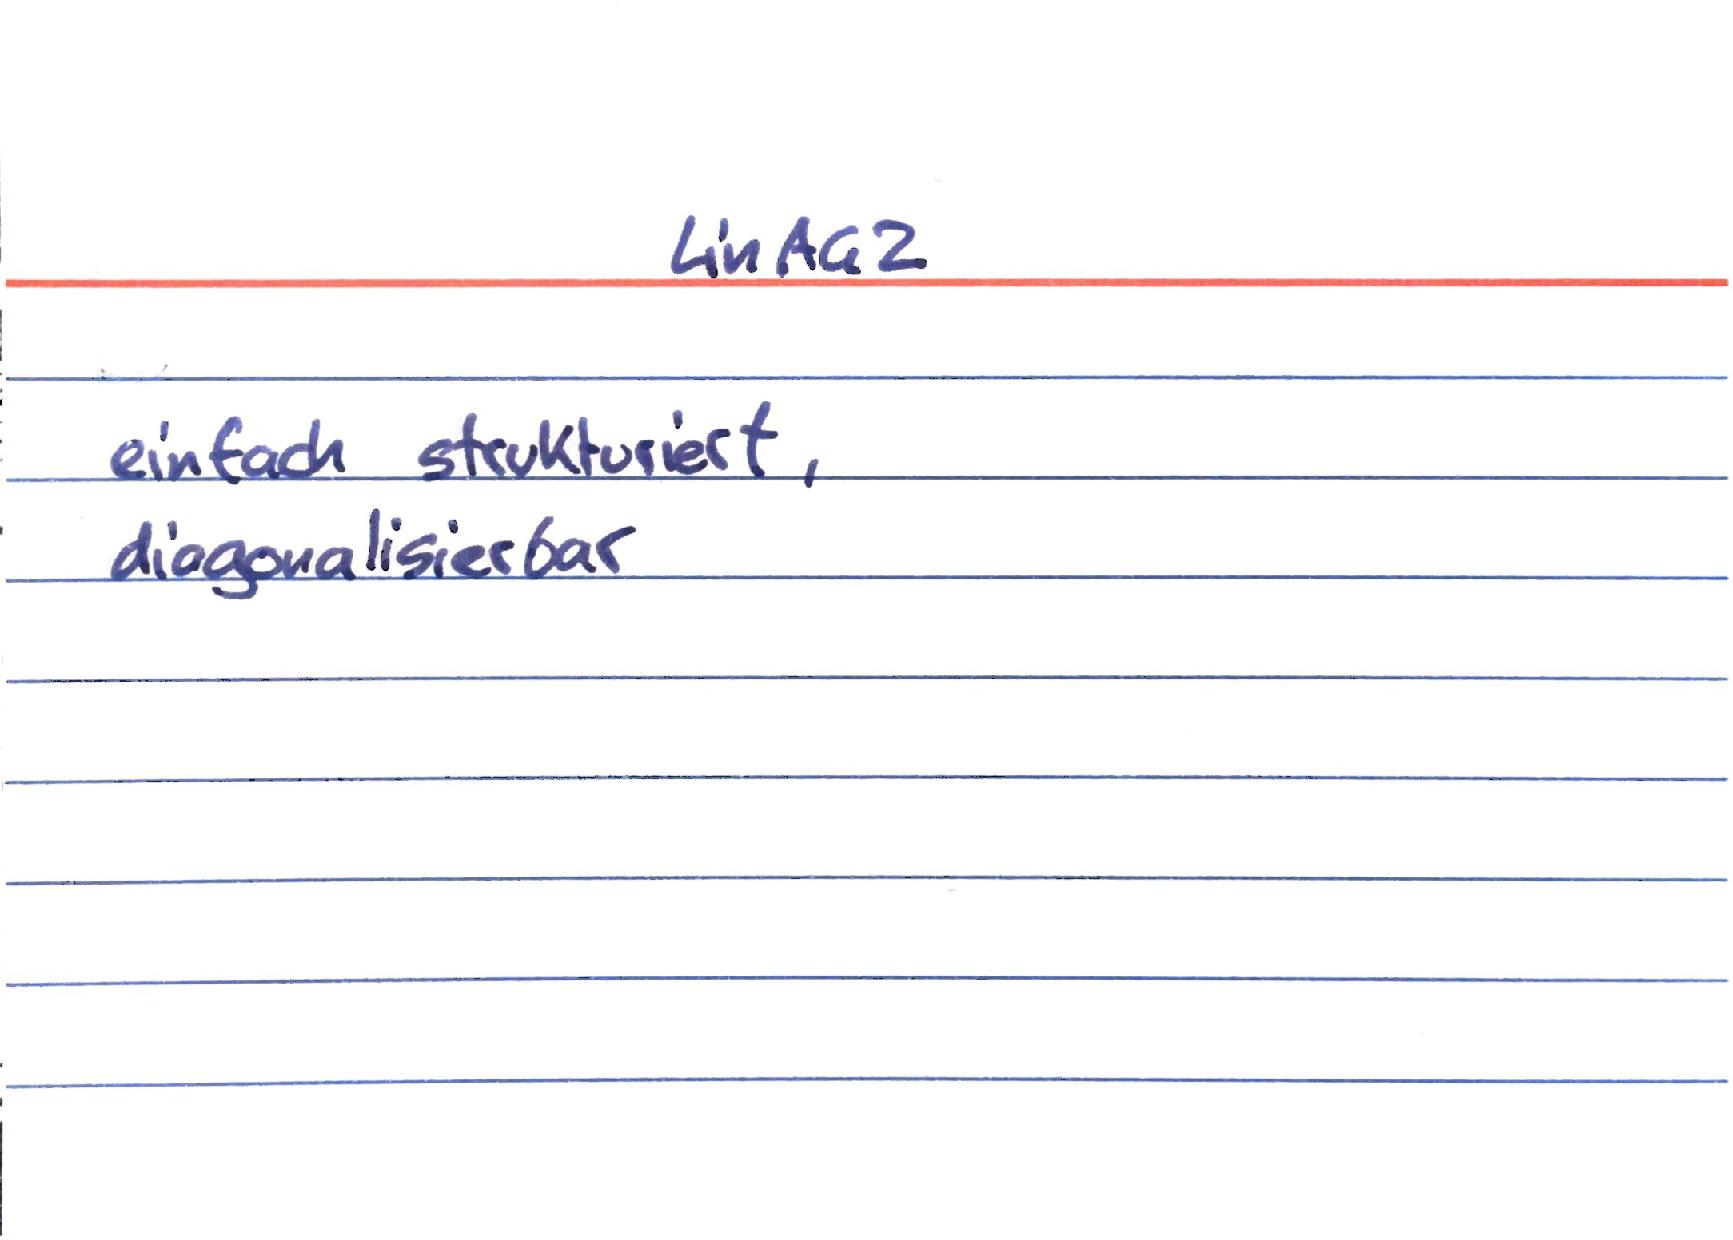 LinAG2
einfach strukturiert,
diagonalisierbar